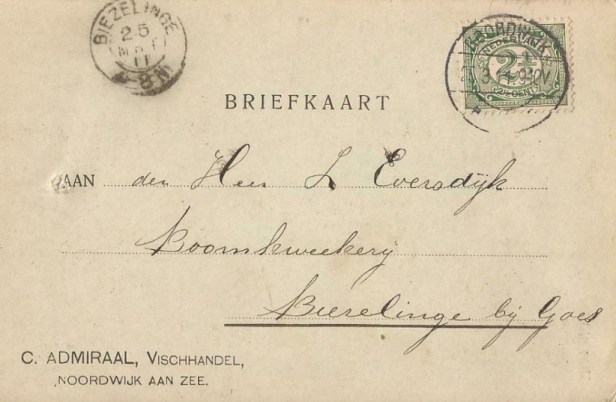 BIEZELINGE
25
MRT
11
8N
NOORDWIJK
NEDERLAND
2½
CENT
BRIEFKAART
AAN den Heer L Eversdijk
Boomkweekerij
Biezelinge bij Goes
C. ADMIRAAL, VISCHHANDEL,
NOORDWIJK AAN ZEE.